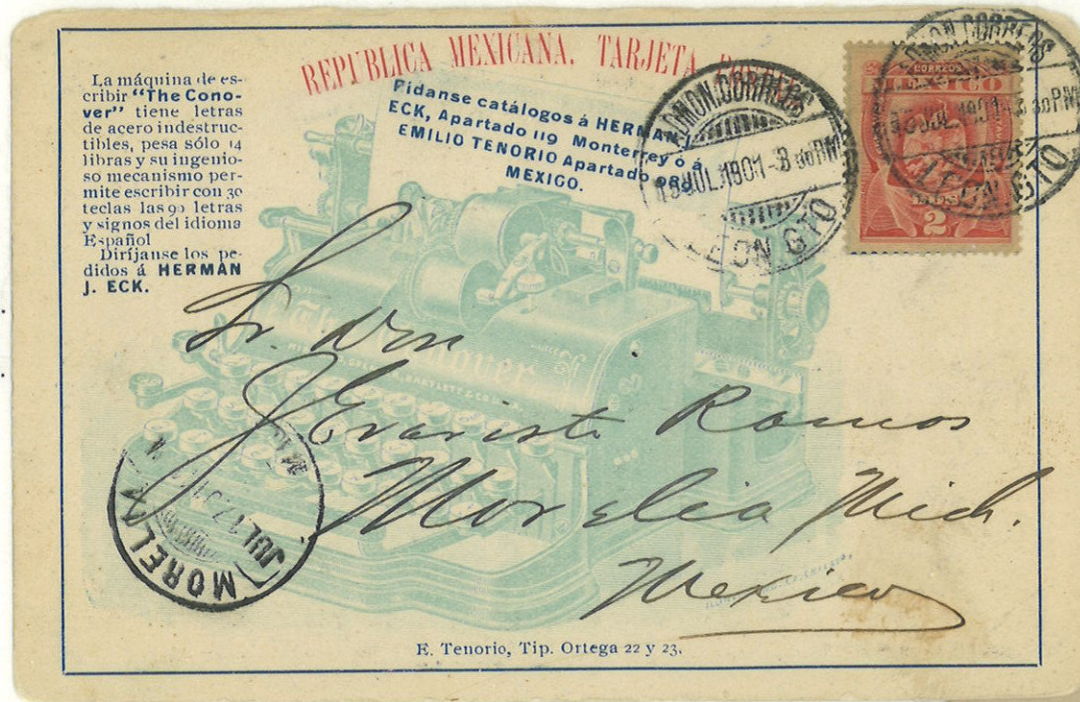 REPUBLICA MEXICANA. TARJETA
La máquina de es-
cribir "The Cono-
ver" tiene letras
de acero indestruc-
tibles, pesa sólo 14
libras y su ingenio-
so mecanismo per-
mite escribir con 30
teclas las 90 letras
y signos del idioma
Español
Diríjanse los pe-
didos á HERMAN
J. ECK.
Pídanse catálogos á HERMAN
ECK, Apartado 119 Monterrey ó á
EMILIO TENORIO Apartado
MEXICO.
CORREOS
JUL. 1901 - 3 30 PM
LEON GTO
CORREOS
MEXICO
2
CORREOS
JUL. 1901 - 3 30 PM
LEON GTO
The Conover
Sr. Don
J. Evaristo Ramos
Morelia Mich.
Mexico
JUL 17 01
MOREL
E. Tenorio, Tip. Ortega 22 y 23.